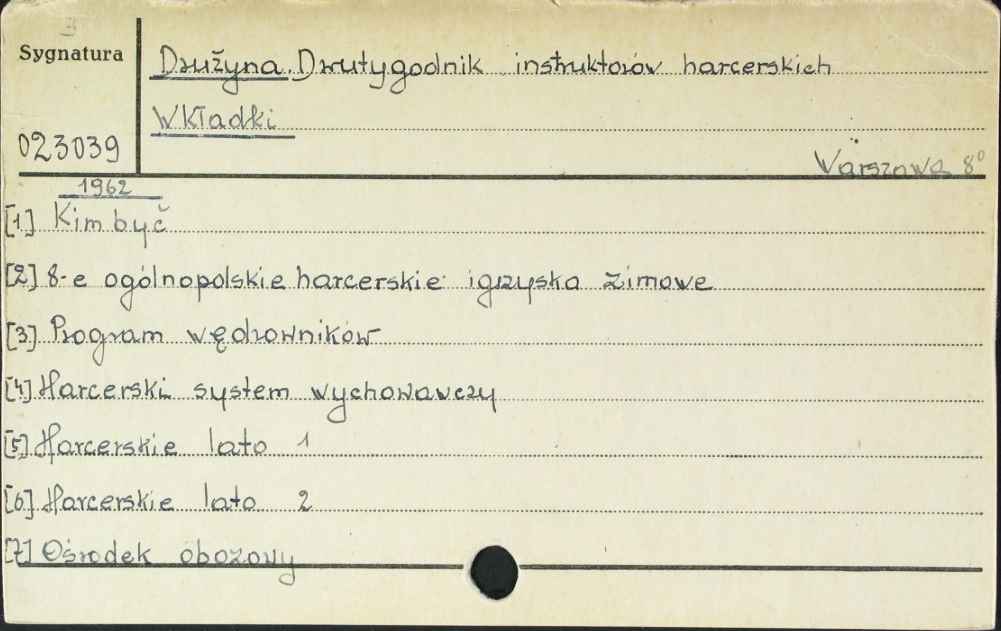 Sygnatura
Drużyna. Dwutygodnik instruktorów harcerskich
Wkładki
023039
Warszawa 8°
1962
[1] Kim być
[2] 8-e ogólnopolskie harcerskie igrzyska zimowe
[3] Program wędrowników
[4] Harcerski system wychowawczy
[5] Harcerskie lato 1
[6] Harcerskie lato 2
[7] Ośrodek obozowy